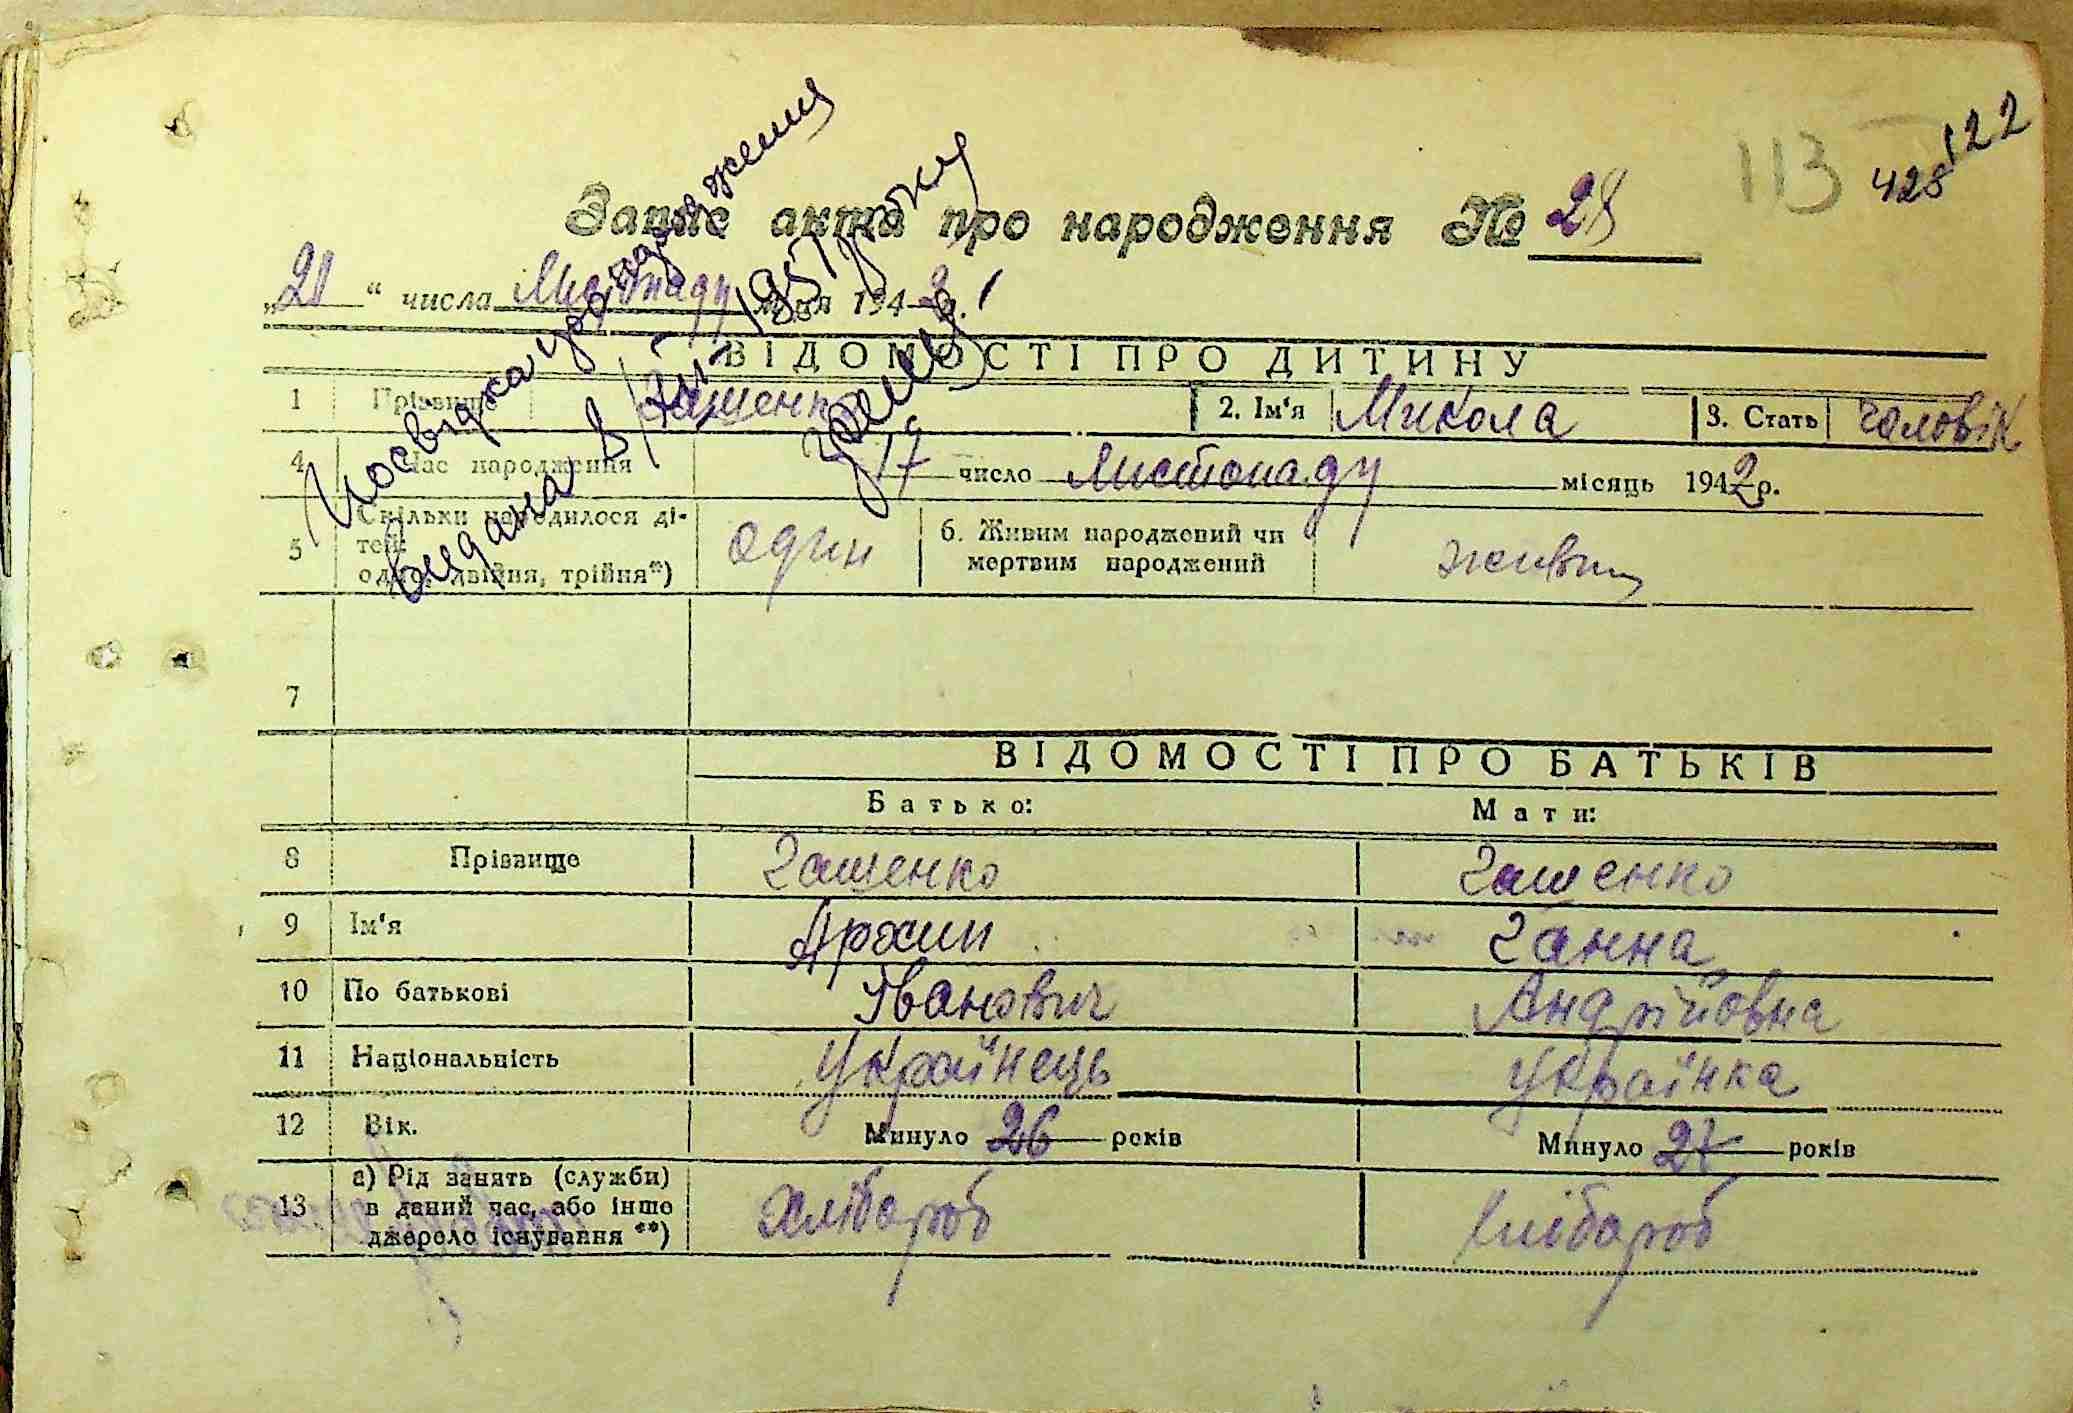 113 428 122
Запис акта про народження № 28
„20“ числа Листопаду м-ця 1942 р.
Посвідка про народження
видана 8/XII-1951 року
ВІДОМОСТІ ПРО ДИТИНУ
1 Прізвище Гащенко 2. Ім'я Микола 3. Стать чоловік
4 Час народження 17 число Листопаду місяць 1942 р.
5 Скільки народилося ді-
тей:
одно, двійня, трійня*) один 6. Живим народжений чи
мертвим народжений живим
7
ВІДОМОСТІ ПРО БАТЬКІВ
Батько: Мати:
8 Прізвище Гащенко Гащенко
9 Ім'я Архип Ганна
10 По батькові Іванович Андрійовна
11 Національність Українець Українка
12 Вік. Минуло 26 років Минуло 27 років
13 а) Рід занять (служби)
в даний час, або інше
джерело існування **) хлібороб хлібороб